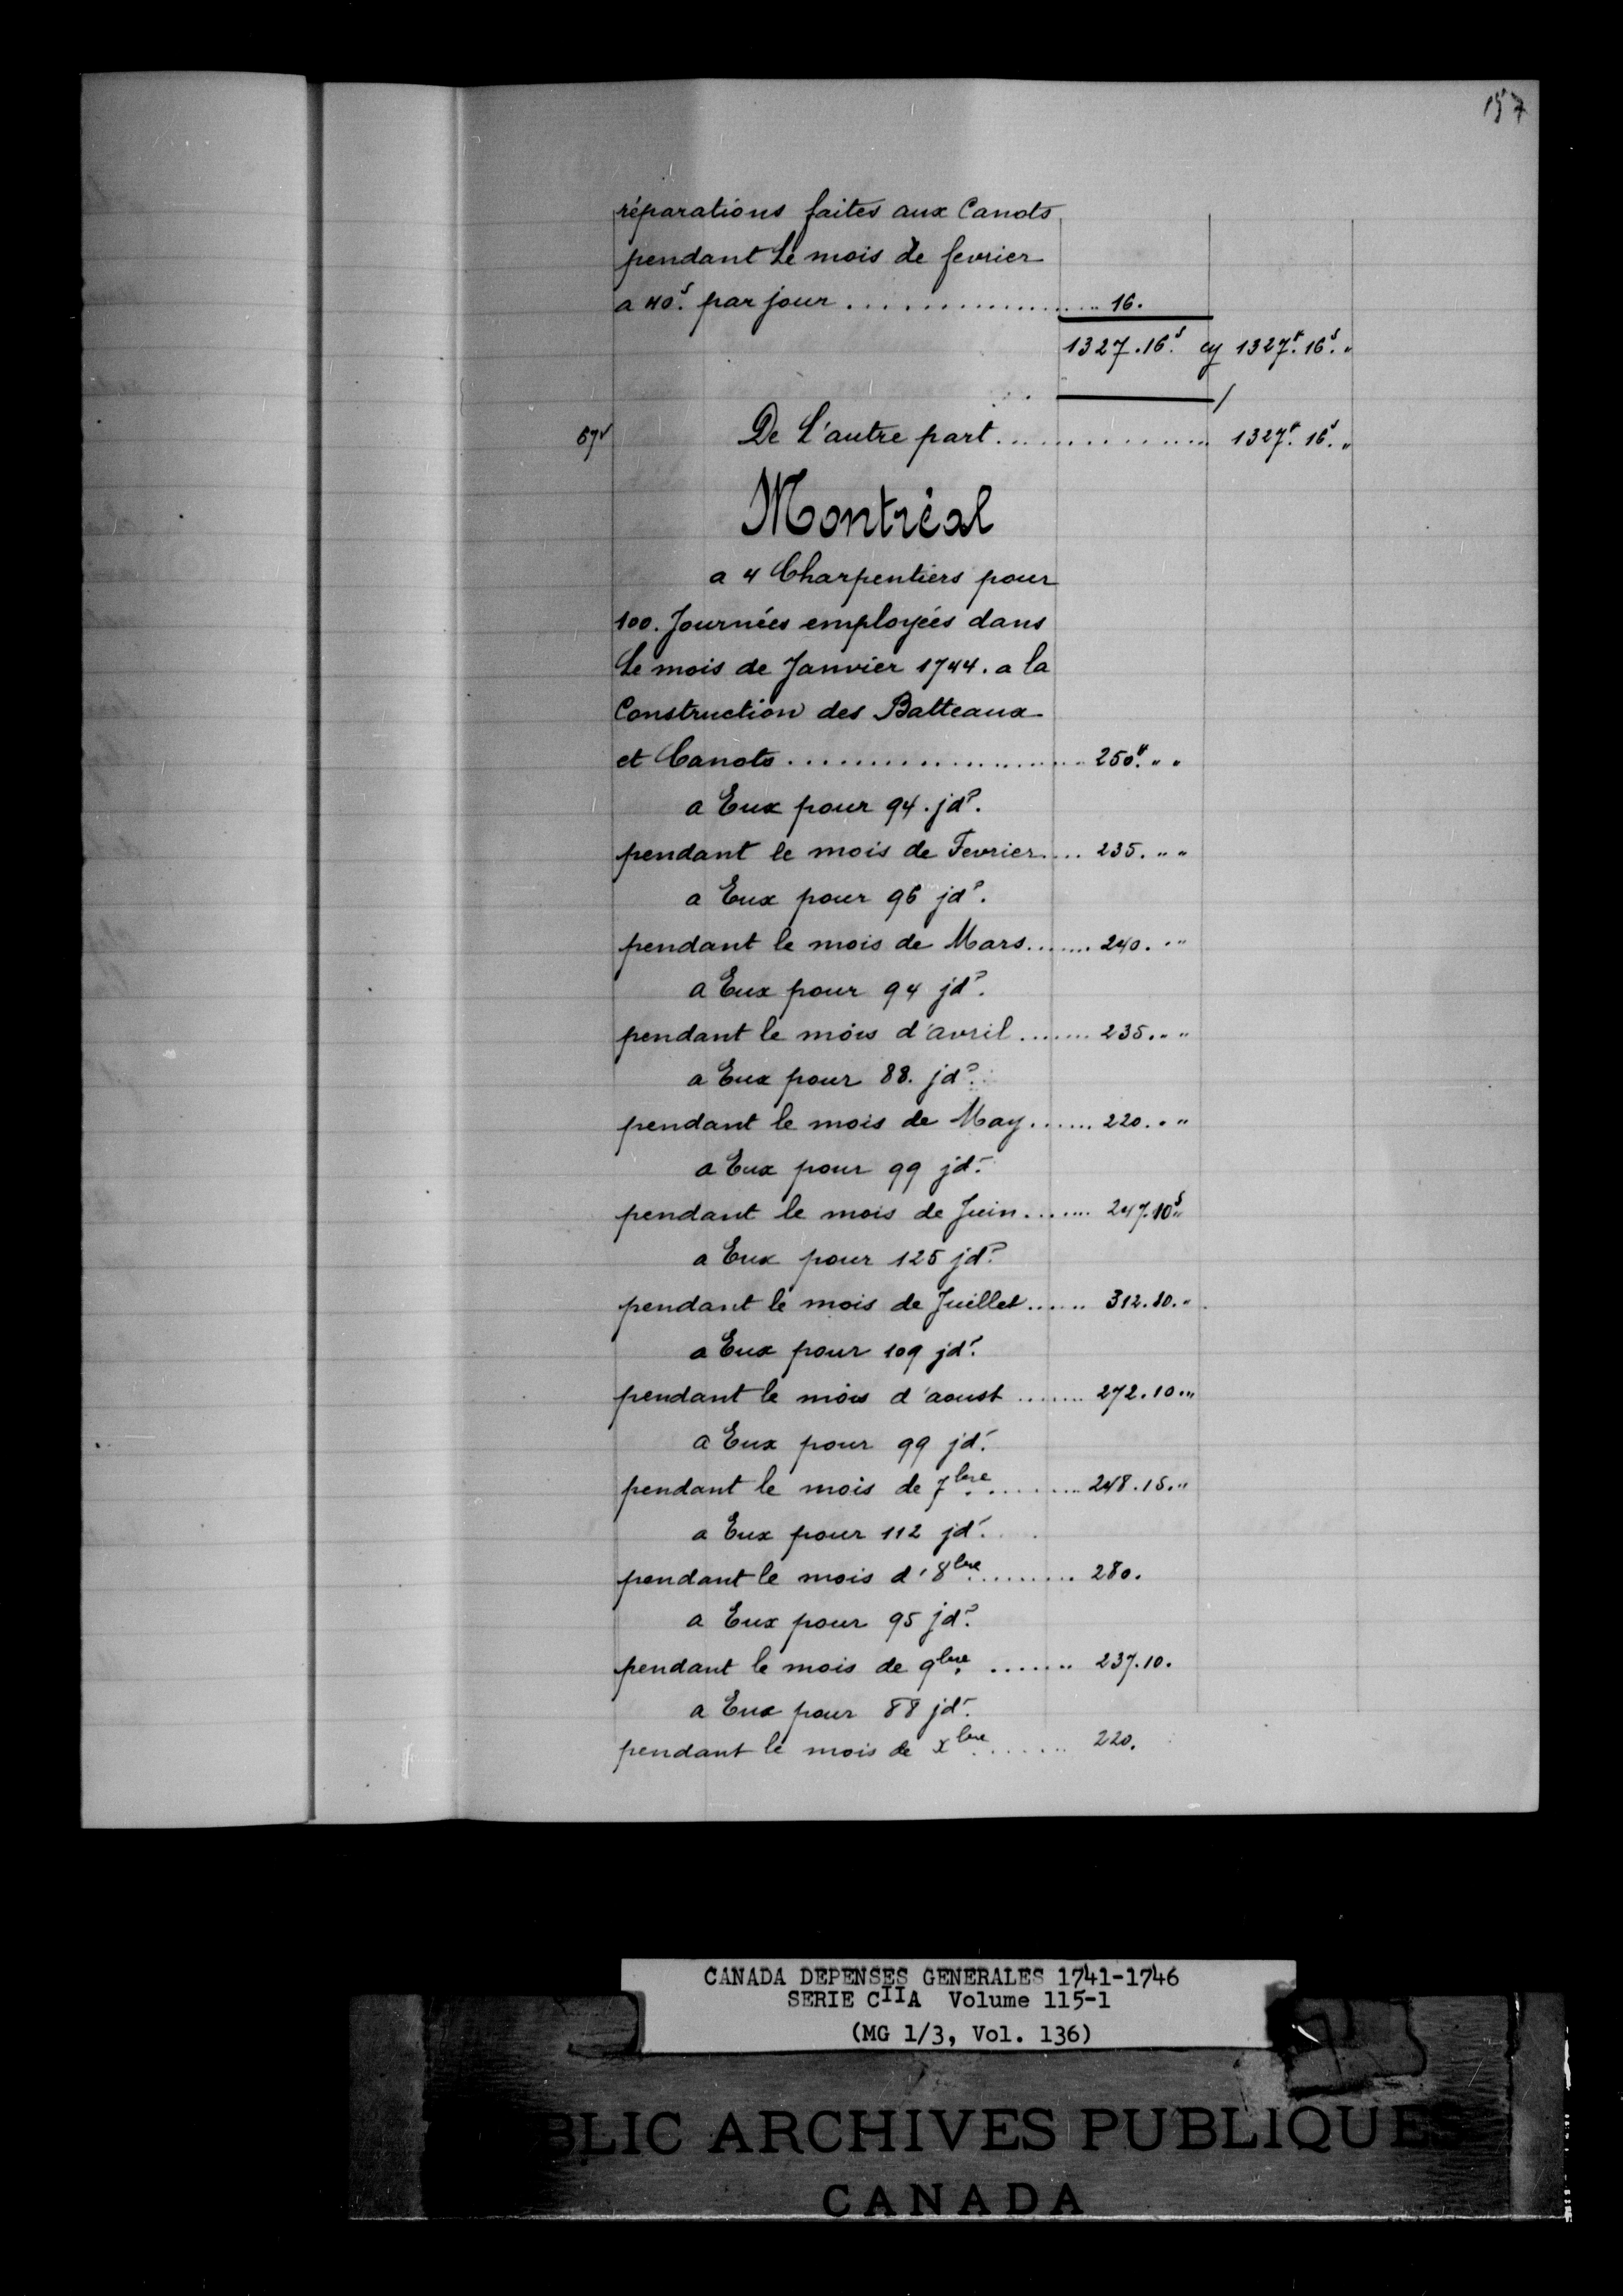 157
réparations faites aux Canots
pendant Le mois de fevrier
a 40s. par jour .................. 16.
1327.16s. cy 1327#. 16s. "
67v De L'autre part ................ 1327#. 16s. "
Montréal
a 4 Charpentiers pour
100. Journées employées dans
Le mois de Janvier 1744. a la
Construction des Batteaux
et Canots ...................... 250#. " "
a Eux pour 94. jd?.
pendant le mois de Fevrier .... 235. " "
a Eux pour 96 jd?.
pendant le mois de Mars ....... 240. " "
a Eux pour 94 jd?.
pendant le mois d'avril ....... 235. " "
a Eux pour 88. jd?.
pendant le mois de May ...... 220. " "
a Eux pour 99 jd.
pendant le mois de Juin ....... 247.10s "
a Eux pour 125 jd?.
pendant le mois de Juillet ...... 312.10. "
a Eux pour 109 jd.
pendant le mois d'aoust ....... 272.10. "
a Eux pour 99 jd.
pendant le mois de 7bre ......... 248.15. "
a Eux pour 112 jd.
pendant le mois d'8bre .......... 280.
a Eux pour 95 jd?.
pendant le mois de 9bre ....... 237.10.
a Eux pour 88 jd.
pendant le mois de xbre ....... 220.
CANADA DEPENSES GENERALES 1741-1746
SERIE CIIA Volume 115-1
(MG 1/3, Vol. 136)
BLIC ARCHIVES PUBLIQUES
CANADA